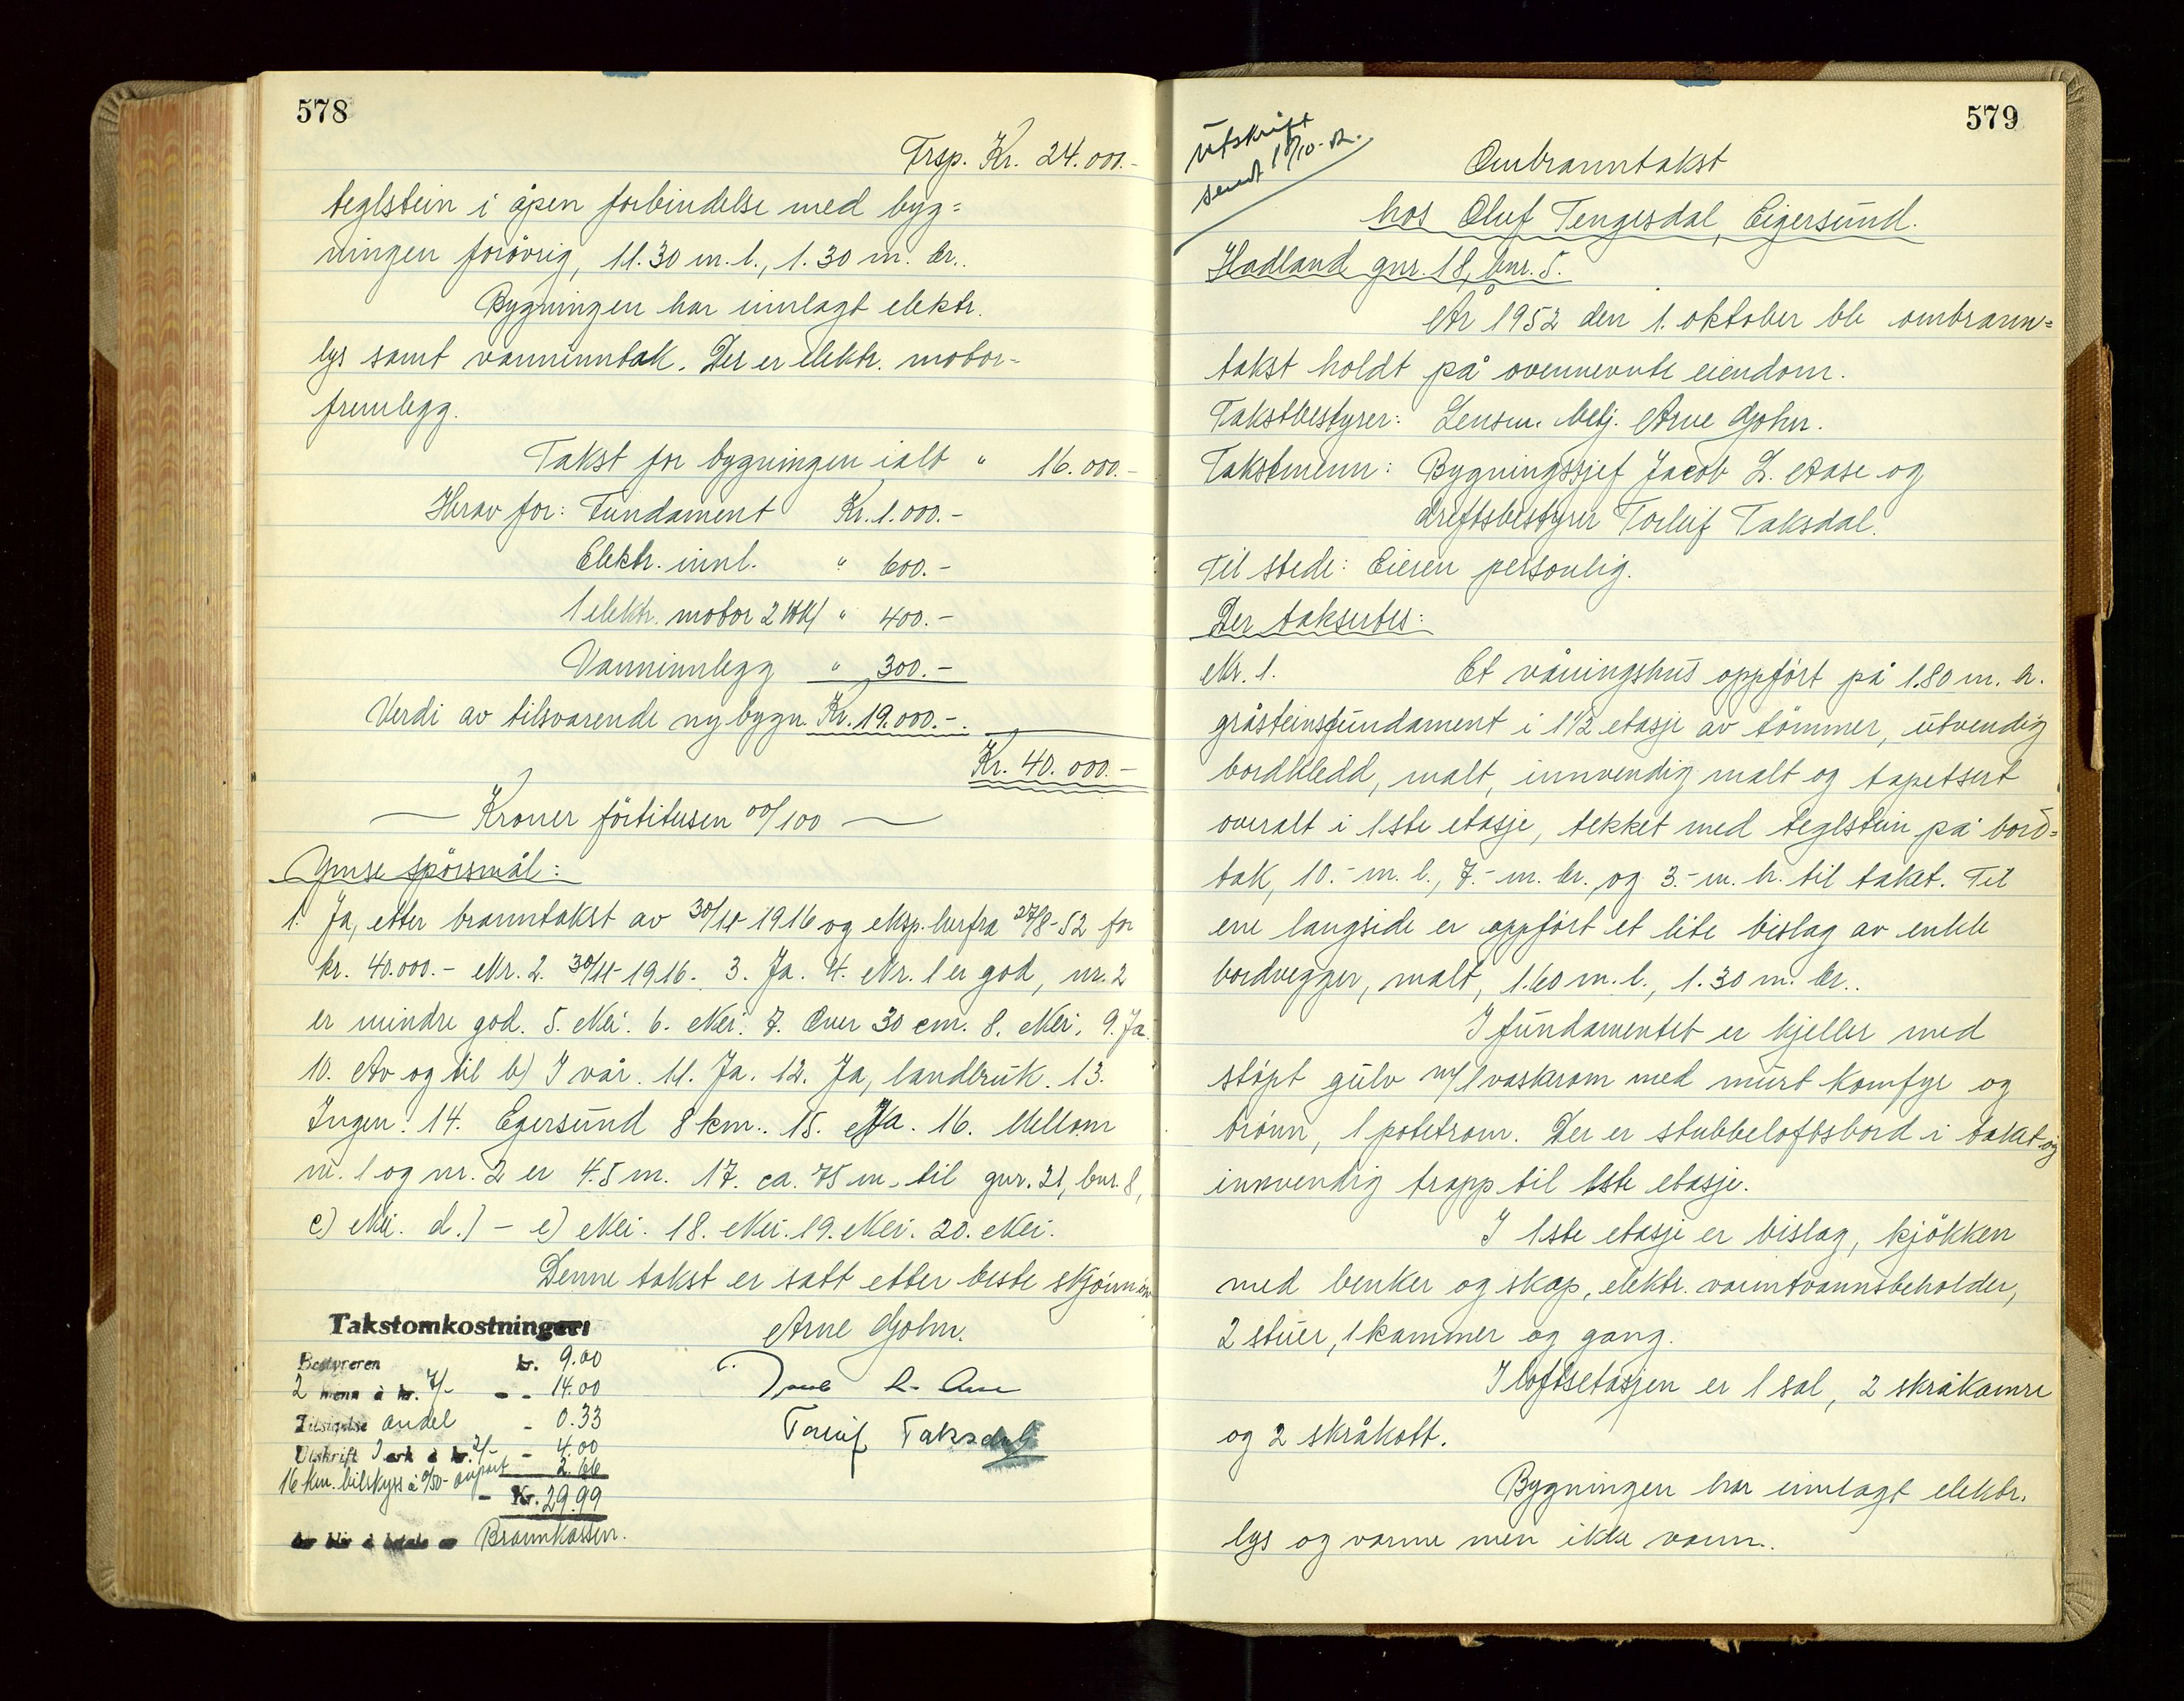 578
Trsp. Kr. 24.000.-
teglstein i åpen forbindelse med byg=
ningen forøvrig, 11.30 m. l., 1.30 m. br..
Bygningen har innlagt elektr.
lys samt vanninntak. Der er elektr. motor-
fremlegg.
Takst for bygningen ialt " 16.000.-
Herav for: Fundament Kr. 1.000.-
Elektr. innl. " 600.-
1 elektr. motor 2 HK " 400.-
Vanninnlegg " 300.-
Verdi av tilsvarende ny bygn. Kr. 19.000.-.
Kr. 40.000.-
Kroner førtitusen 00/100
Ymse spørsmål:
1. Ja, etter branntakst av 30/11-1916 og eksp. herfra 27/8-52 for
kr. 40.000.- Nr. 2. 30/11-1916. 3. Ja. 4. Nr. 1 er god, nr. 2
er mindre god. 5. Nei. 6. Nei. 7. Over 30 cm. 8. Nei. 9. Ja.
10. Av og til b) I vår. 11. Ja. 12. Ja, landbruk. 13.
Ingen. 14. Egersund 8 km.. 15. Ja. 16. Mellom
nr. 1 og nr. 2 er 4.5 m. 17. ca. 75 m. til gnr. 21, bnr. 8,
c) Nei. d.) - e) Nei. 18. Nei. 19. Nei. 20. Nei.
Denne takst er satt etter beste skjønn
Takstomkostninger:
Arne Gohn.
Bestyreren kr. 9.00
2 menn à kr. 7/- - - 14.00
andel - 0.33
Utskrift 2 ark à kr. 2/- - 4.00
16 km. bilskyss à 0/50- anpart 2.66
- Kr. 29.99
Torleif Taksdal
som blir å betale av Brannkassen.
579
Utskrift
sendt 18/10-52.
Ombranntakst
hos Oluf Tengesdal, Eigersund.
Hadland gnr. 18, bnr. 5.
År 1952 den 1. oktober ble ombrann=
takst holdt på ovennevnte eiendom.
Takstbestyrer: Lensm. betj. Arne Gohn.
Takstmenn: Bygningssjef Jacob L. Aase og
driftsbestyrer Torleif Taksdal.
Til stede: Eieren personlig.
Der taksertes:
Nr. 1. Et våningshus oppført på 1.80 m. h.
gråsteinsfundament i 1 1/2 etasje av tømmer, utvendig
bordkledd, malt, innvendig malt og tapetsert
overalt i 1ste etasje, tekket med teglstein på bord=
tak, 10.- m. l., 7.- m. br., og 3.- m. h. til taket. Til
ene langside er oppført et lite bislag av enkle
bordvegger, malt, 1.60 m. l., 1.30 m. br..
I fundamentet er kjeller med
støpt gulv m/1 vaskerom med murt komfyr og
brønn, 1 potetrom. Der er stubbeloftsbord i taket og
innvendig trapp til 1ste etasje.
I 1ste etasje er bislag, kjøkken
med benker og skap, elektr. varmtvannsbeholder,
2 stuer, 1 kammer og gang.
I loftsetasjen er 1 sal, 2 skråkamre
og 2 skråkott.
Bygningen har innlagt elektr.
lys og varme men ikke vann..